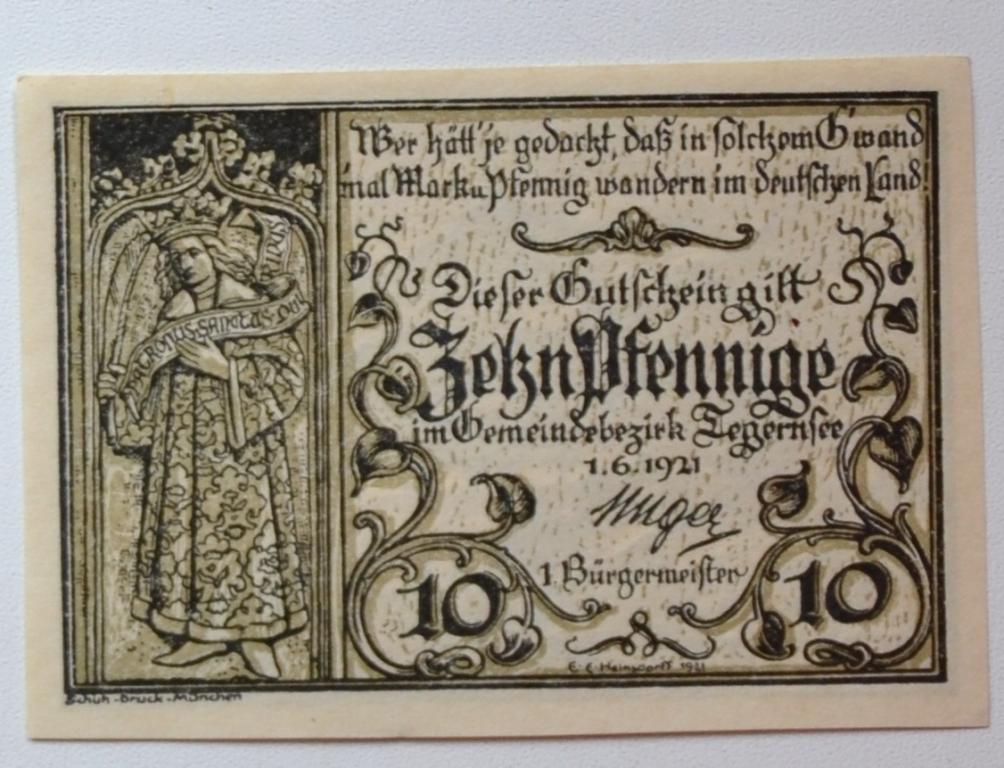 Wer hätt' je gedacht, daß in solchem G'wand
'mal Mark u. Pfennig wandern im deutschen Land!
PATRONUS·SANCTUS·QUI
RINUS
Dieser Gutschein gilt
Zehn Pfennige
im Gemeindebezirk Tegernsee
1.6.1921
1 Bürgermeister
10 10
E. E. Heinsdorff 1921
Schuh-Druck-München